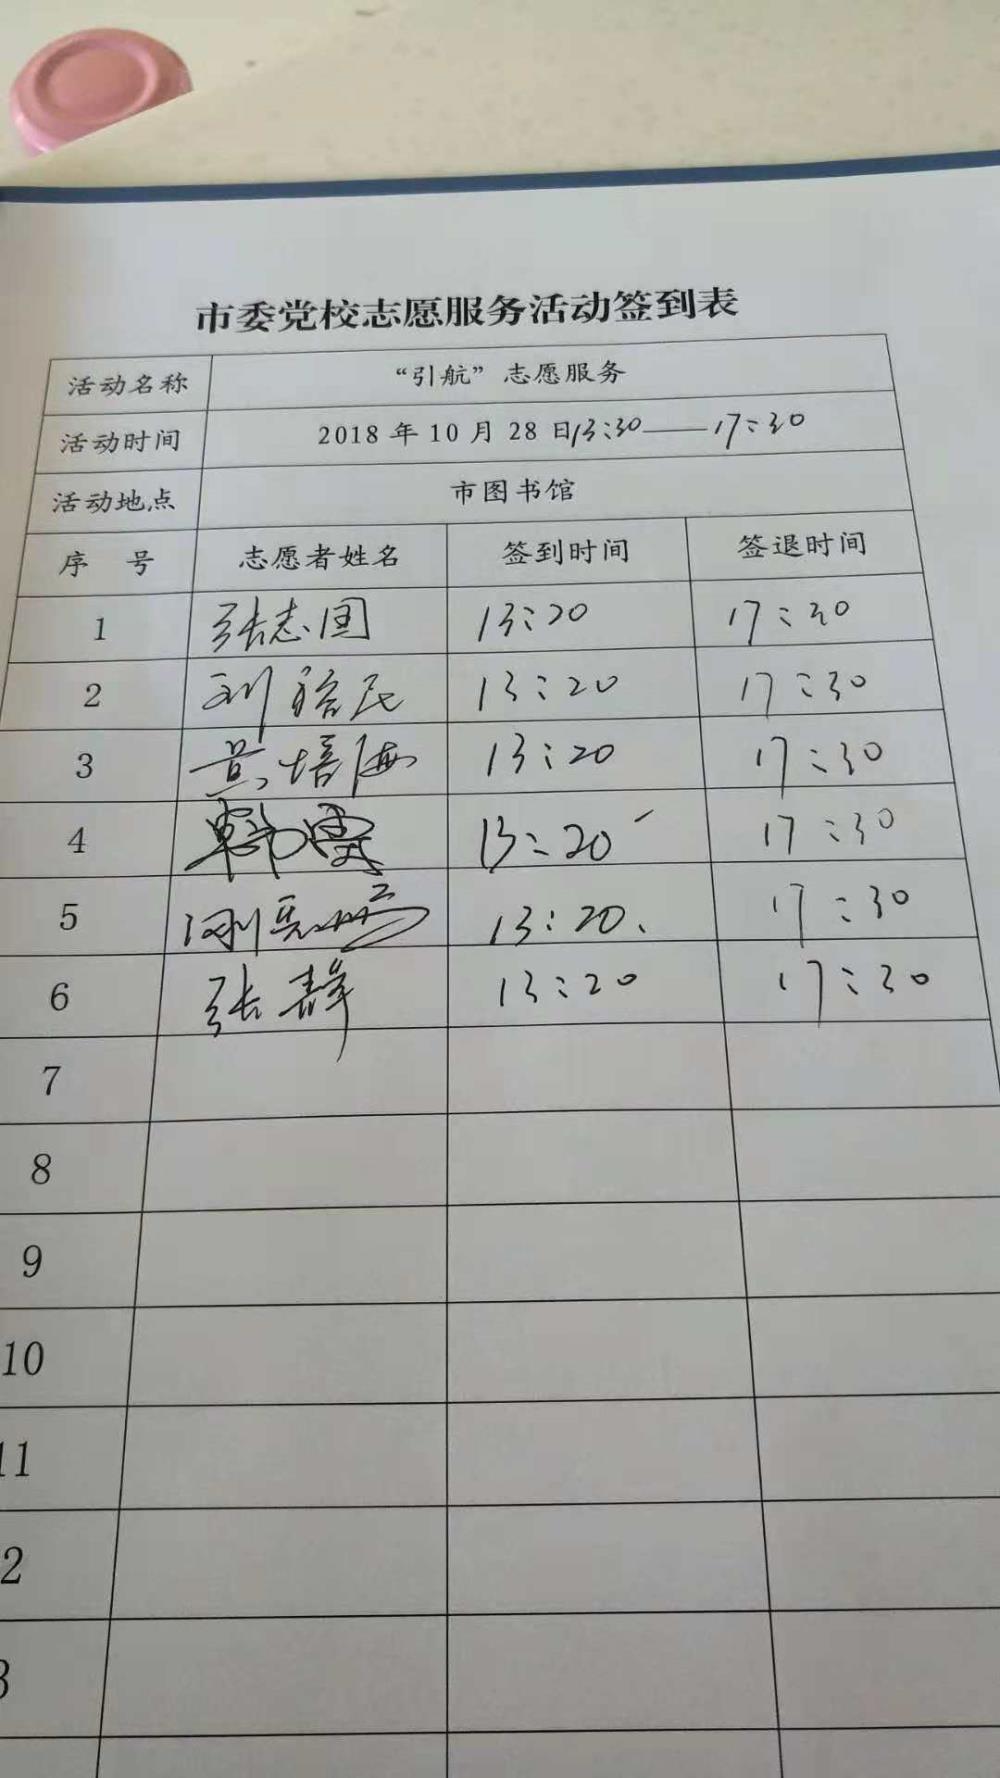 市委党校志愿服务活动签到表
活动名称 “引航”志愿服务
活动时间 2018年10月28日13:30——17:30
活动地点 市图书馆
序 号 志愿者姓名 签到时间 签退时间
1 张志国 13:20 17:30
2 刘裕民 13:20 17:30
3 黄培海 13:20 17:30
4 韩雯 13:20 17:30
5 13:20. 17:30
6 张静 13:20 17:30
7
8
9
10
11
2
3